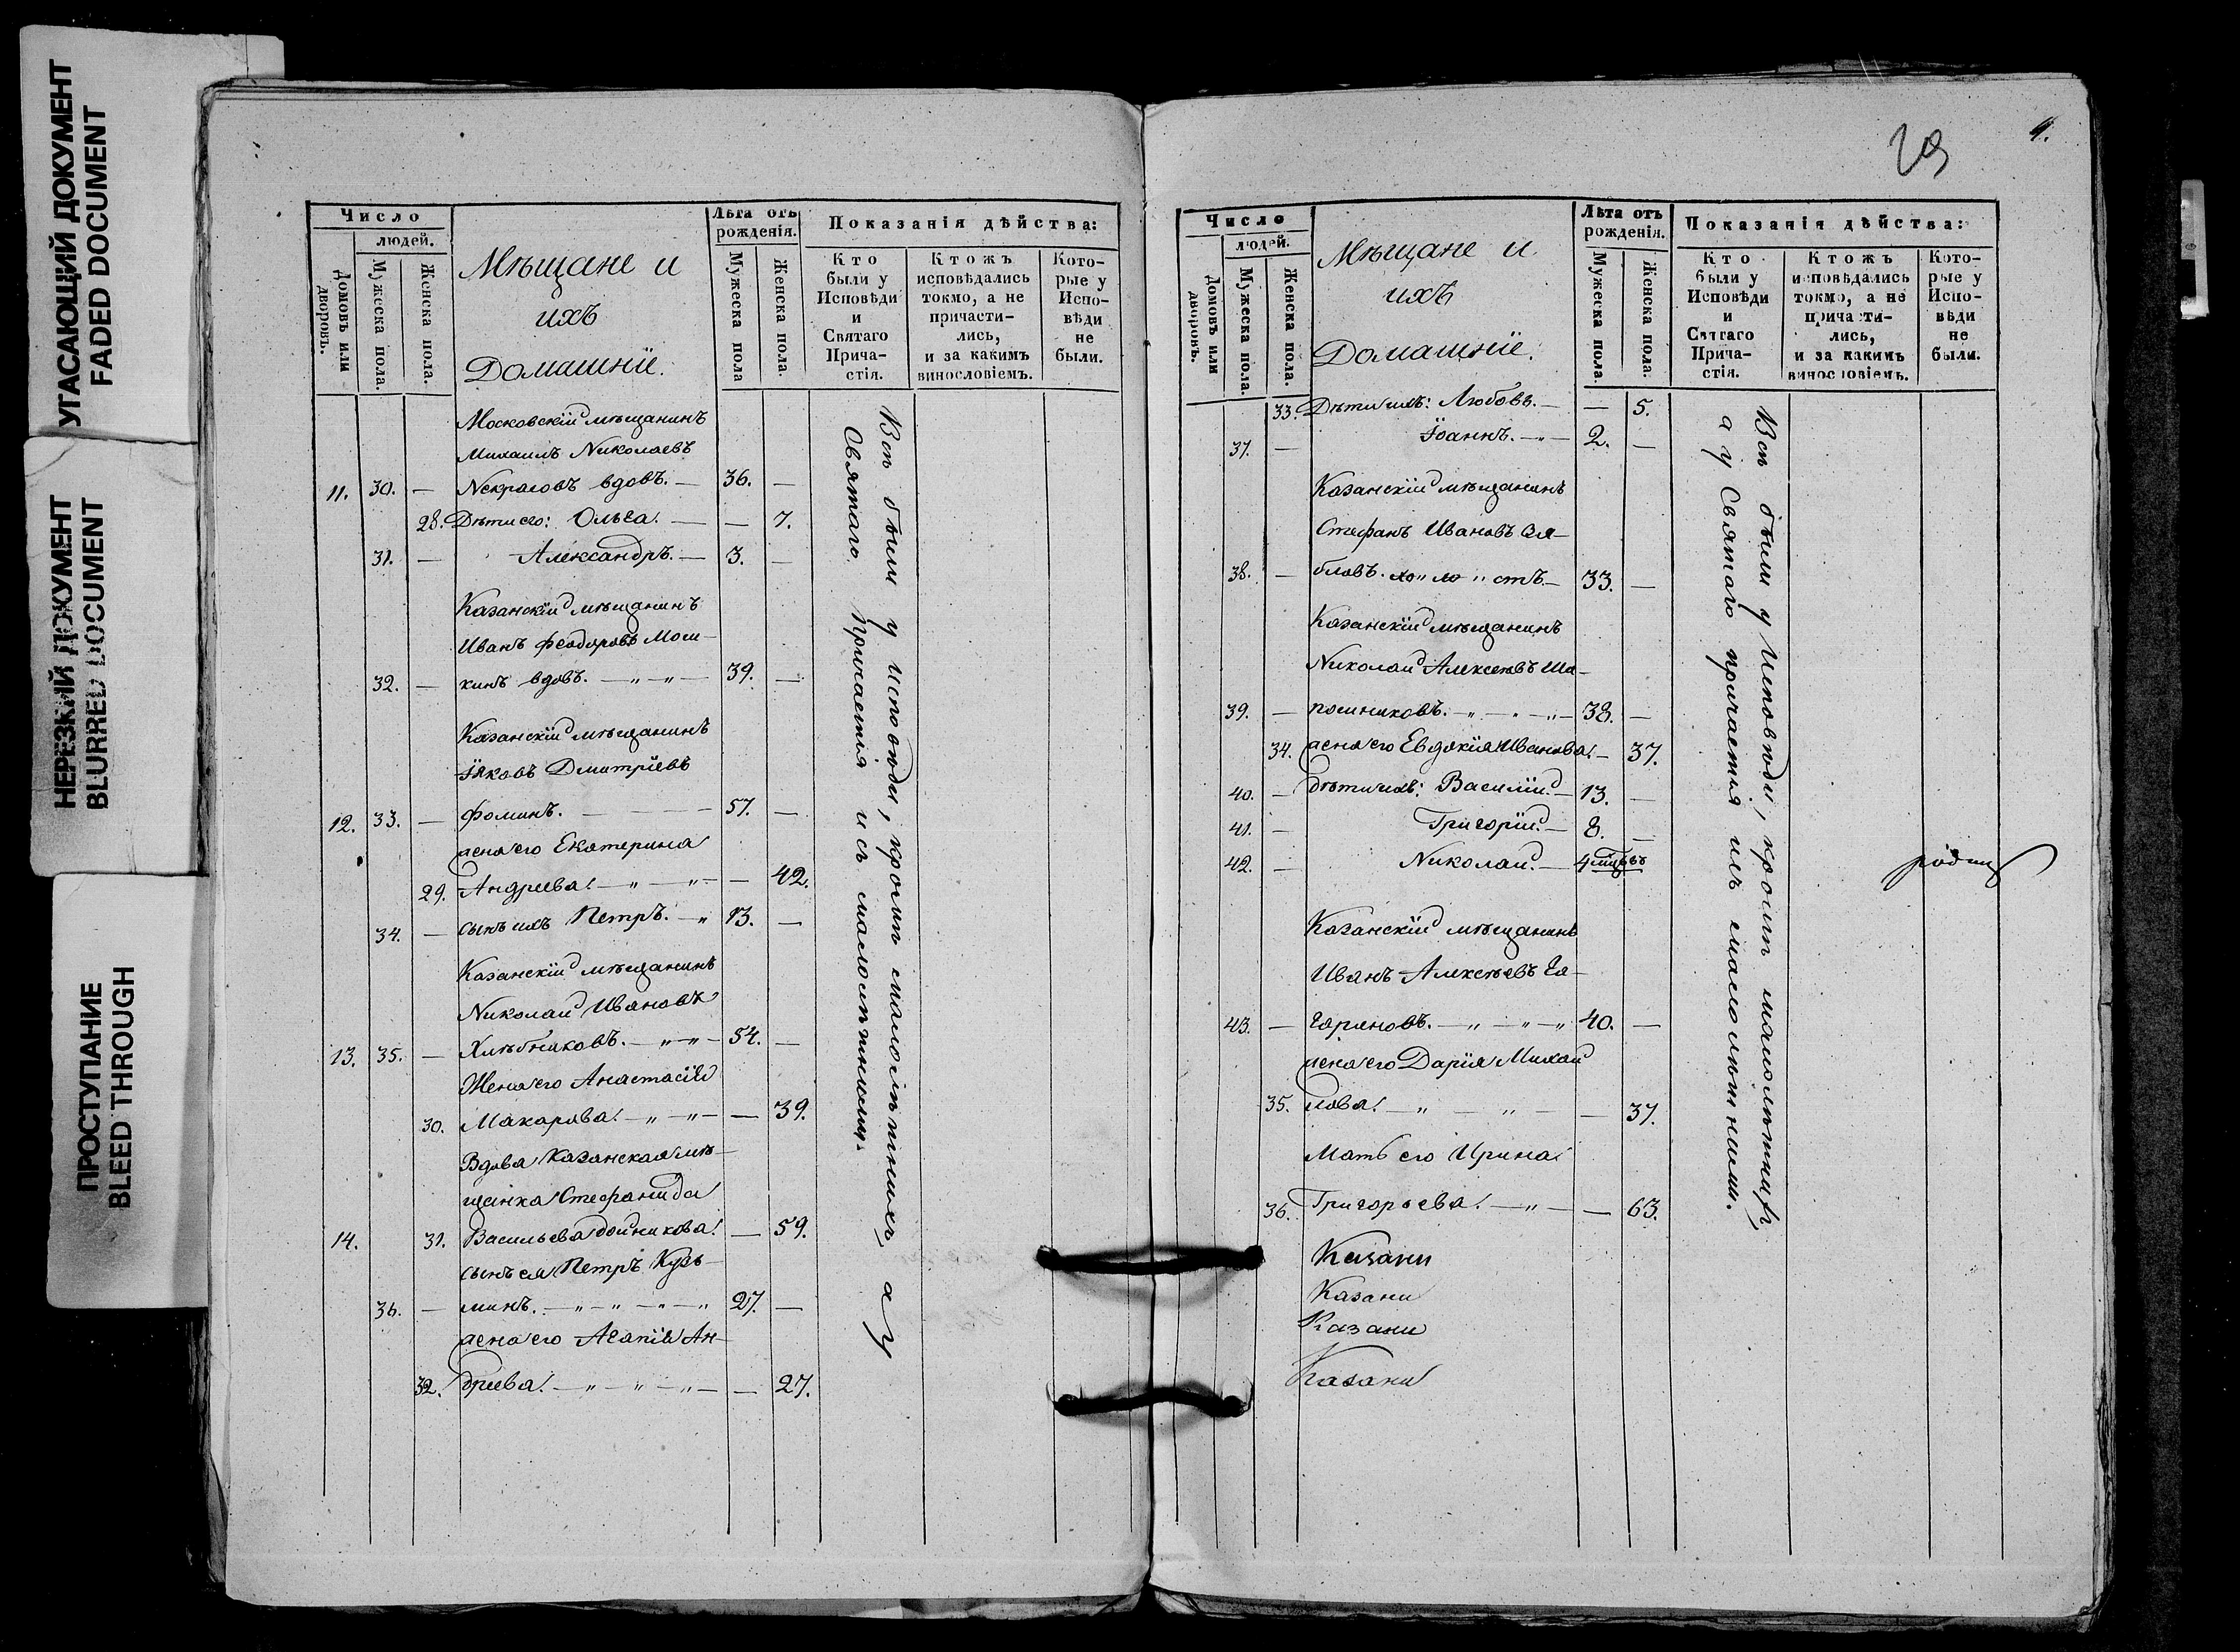 УГАСАЮЩИЙ ДОКУМЕНТ
FADED DOCUMENT
НЕРЕЗКИЙ ДОКУМЕНТ
BLURRED DOCUMENT
ПРОСТУПАНИЕ
BLEED THROUGH
Число
людей.
Домовъ или дворовъ.
Мужеска пола.
Женска пола.
Мѣщане и
ихъ
Домашніе.
Лѣта отъ рожденія.
Мужеска пола
Женска пола.
Показанія дѣйства:
Кто были у Исповѣди и Святаго Прича-стія.
Ктожъ исповѣдались токмо, а не причасти-лись, и за какимъ винословіемъ.
Кото-рые у Испо-вѣди не были.
Московскій мѣщанинъ
Михаилъ Николаевъ
11. 30. — Некрасовъ вдовъ. — 36. —
28. Дѣти его: Ольга. — — 7.
31. — Александръ. — 3. —
Казанскій мѣщанинъ
Иванъ Феодоровъ Мош-
32. — кинъ вдовъ. — „ — „ — 39. —
Казанскій мѣщанинъ
Іяковъ Дмитріевъ
12. 33. — Фоминъ. — 57. —
жена его Екатерина
29. Андреева. — „ — „ — — 42.
34. — сынъ ихъ Петръ. — „ 13. —
Казанскій мѣщанинъ
Николай Ивановъ
13. 35. — Хлѣбниковъ. — „ — „ — 54. —
Жена его Анастасія
30. Макарова. — „ — „ — — 39.
Вдова Казанская мѣ-
щанка Стефанида
14. 31. Васильева Дойникова. — 59.
сынъ ея Петръ Кузь-
36. — минъ. — „ — „ — „ — „ 27. —
жена его Агапія Ан-
32. дреева. — „ — „ — „ — — 27.
Всѣ были у исповѣди, кромѣ малолѣтнихъ, а у
Святаго Причастія и съ малолѣтними.
29
4.
Число
людей.
Домовъ или дворовъ.
Мужеска пола.
Женска пола.
Мѣщане и
ихъ
Домашніе.
Лѣта отъ рожденія.
Мужеска пола.
Женска пола.
Показанія дѣйства:
Кто были у Исповѣди и Святаго Прича-стія.
Ктожъ исповѣдались токмо, а не причасти-лись, и за какимъ винословіемъ.
Кото-рые у Испо-вѣди не были.
33. Дѣти ихъ: Любовь. — — 5.
37. — Іоаннъ. — „ — 2. —
Казанскій мѣщанинъ
Стефанъ Ивановъ
38. — бловъ. хо „ ло „ стъ. — 33. —
Казанскій мѣщанинъ
Николай Алексѣевъ Ша-
39. — пошниковъ. — „ — „ — „ — 38. —
34. жена его Евдокія Иванова. — 37.
40. — дѣти ихъ: Василій. — 13. —
41. — Григорій. — 8. —
42. — Николай. — 4 мцвъ
Казанскій мѣщанинъ
Иванъ Алексѣевъ Га-
43. — гариновъ. — „ — „ — „ 40. —
жена его Дарія Михай
35. лова. — „ — „ — — 37.
Мать его Ирина
36. Григорьева. — „ — — 63.
Казани
Казани
Казани
Казани
Всѣ были у Исповѣди, кромѣ малолѣтнихъ,
а у Святаго причастія и съ малолѣтними.